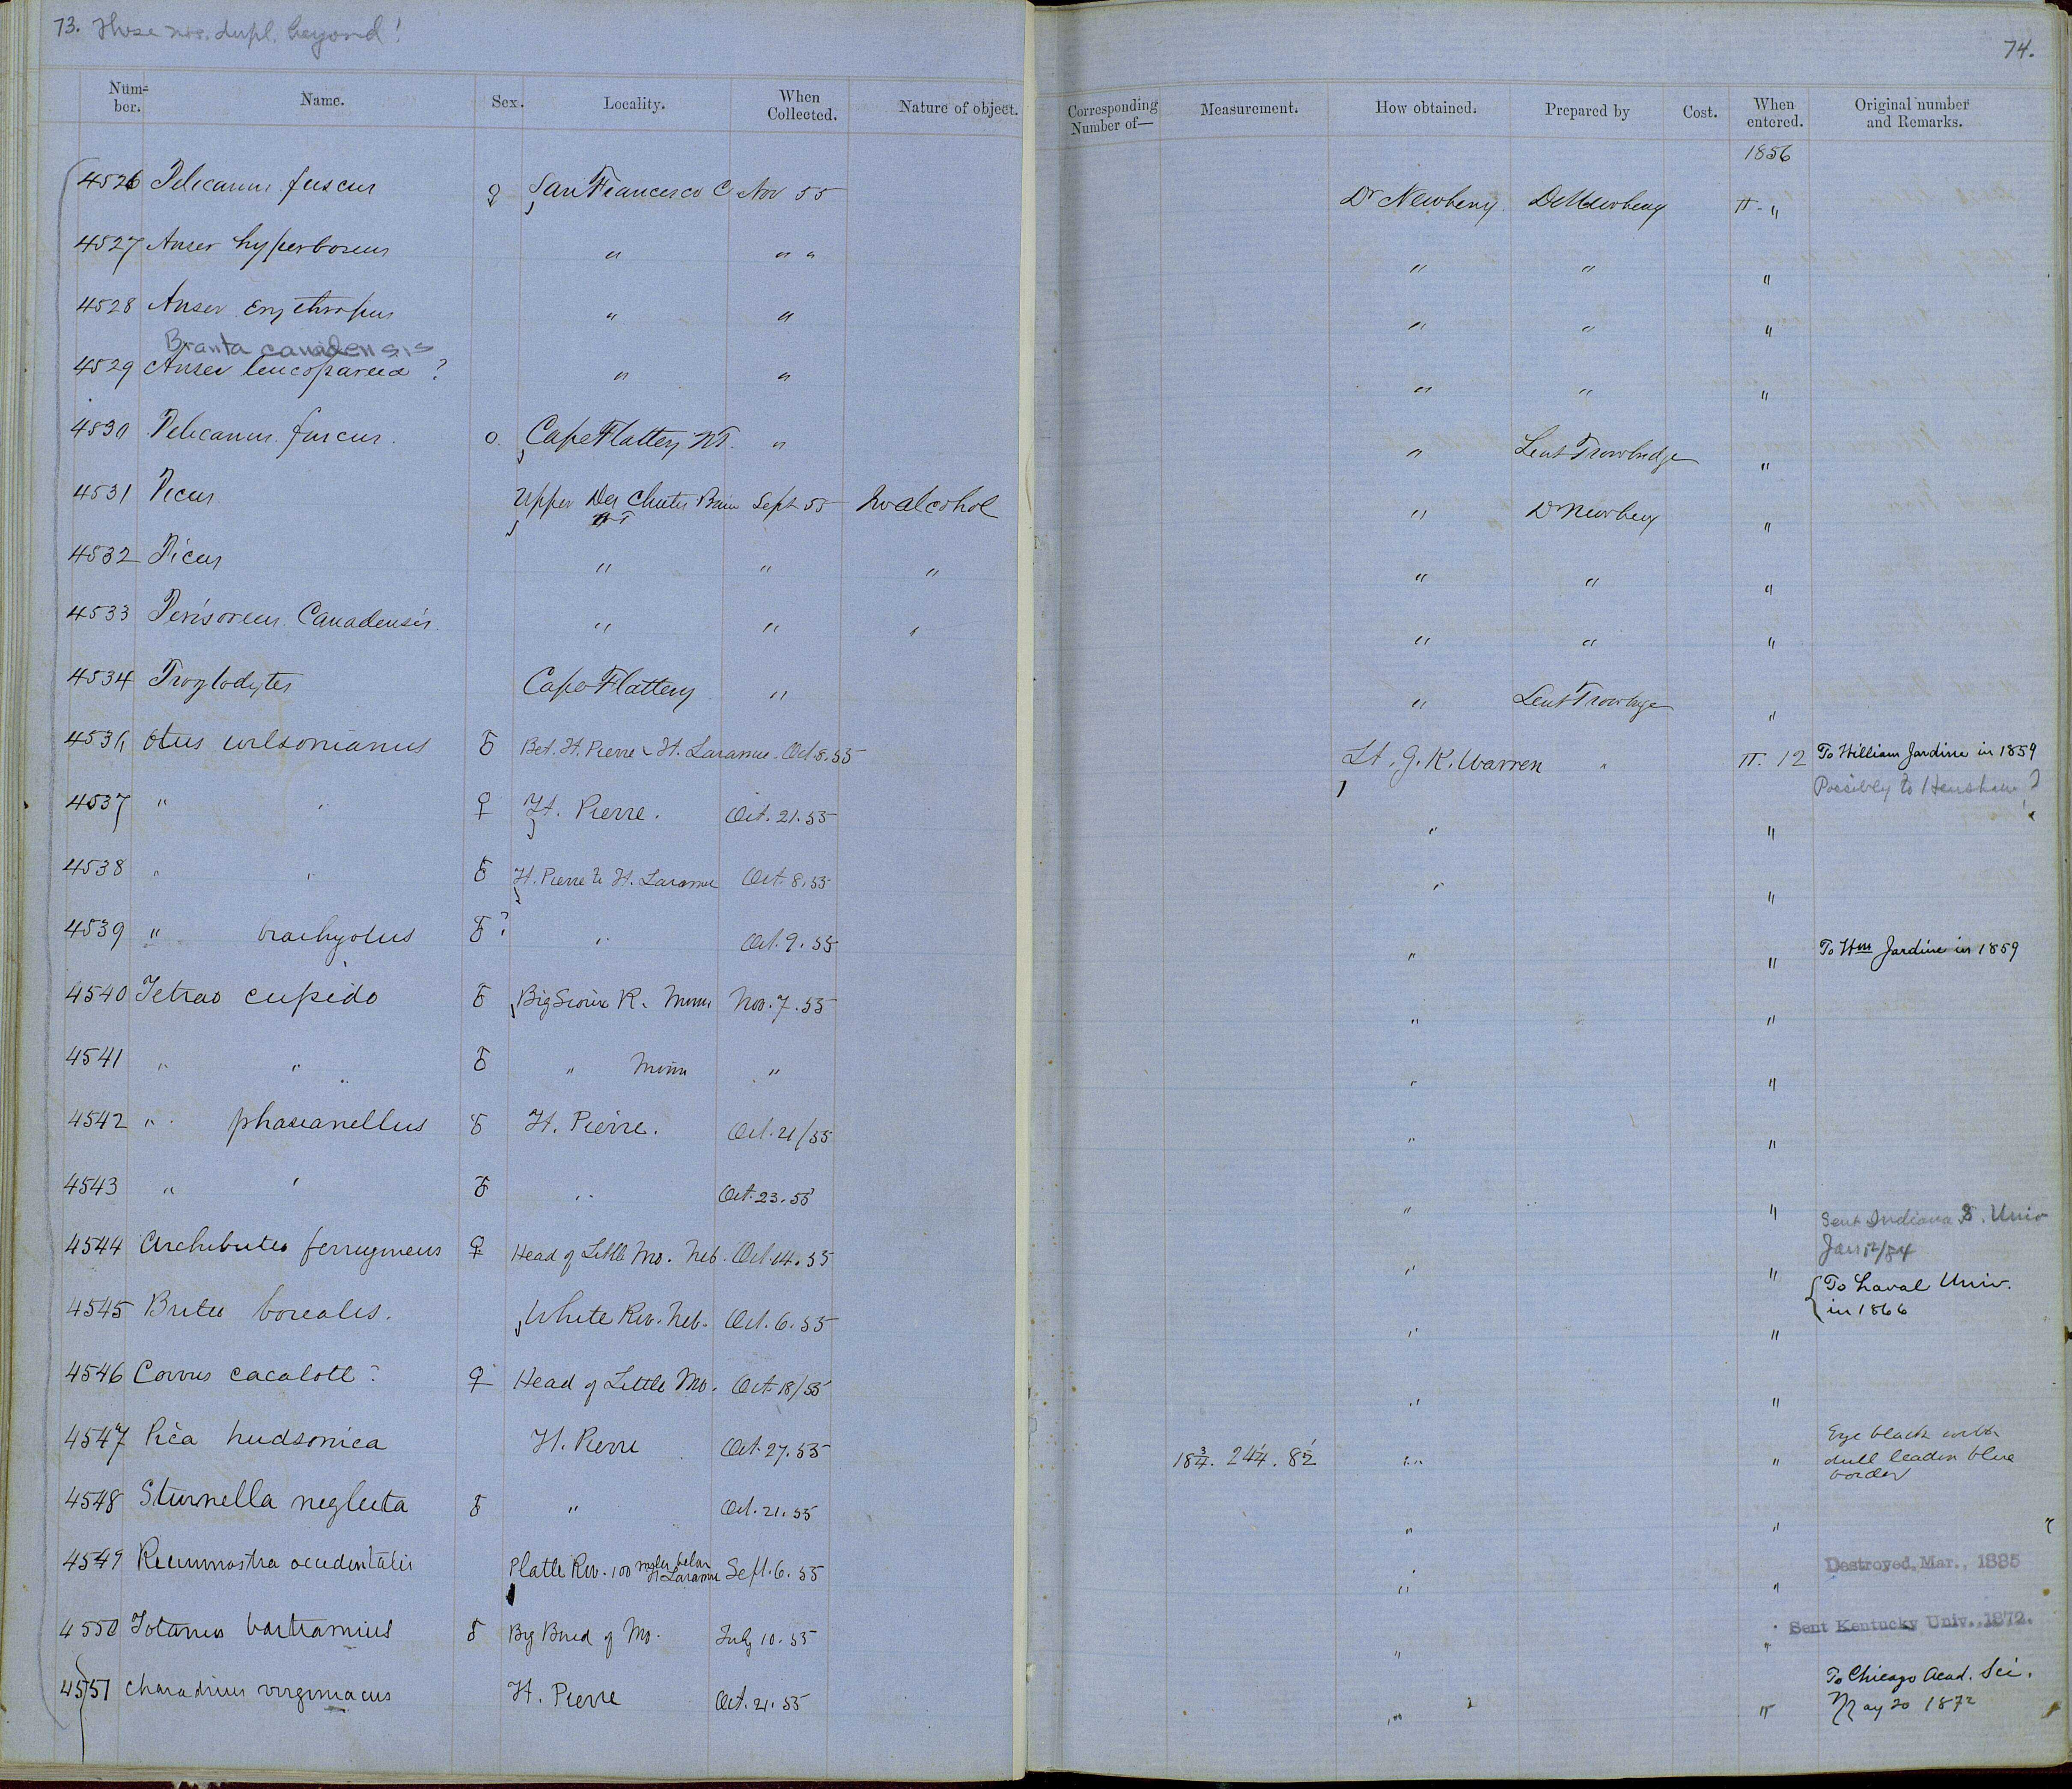 73. These nos. dupl. beyond!
Num-
ber.
Name.
Sex.
Locality.
When
Collected.
Nature of object.
4526 Pelecanus fuscus ♀ San Francisco C Nov 55
4527 Anser hyperboreus " " "
4528 Anser Erythropus " "
Branta canadensis
4529 Anser leucopareia ? " "
4530 Pelecanus fuscus. o. Cape Flattery WT. "
4531 Picus Upper Des Chutes Basin Sept 55 In alcohol
4532 Picus " " "
4533 Perisoreus Canadensis " " "
4534 Troglodytes Cape Flattery "
4536 Otus wilsonianus ♂ Bet. Ft. Pierre & Ft. Laramie. Oct. 8. 55
4537 " " ♀ Ft. Pierre. Oct. 21. 55
4538 " " ♂ Ft. Pierre to Ft. Laramie Oct. 8. 55
4539 " brachyotus ♂? " Oct. 9. 55
4540 Tetrao cupido ♂ Big Sioux R. Minn Nov. 7. 55
4541 " " ♂ " Minn "
4542 " phasianellus ♂ Ft. Pierre. Oct. 21/55
4543 " " ♂ " Oct. 23. 55
4544 Archibuteo ferrugineus ♀ Head of Little Mo. Neb. Oct. 14. 55
4545 Buteo borealis. White Riv. Neb. Oct. 6. 55
4546 Corvus cacalotl ? ♀ Head of Little Mo. Oct 18/55
4547 Pica hudsonica Ft. Pierre Oct. 27. 55
4548 Sturnella neglecta ♂ " Oct. 21. 55
4549 Recurvirostra occidentalis Platte Riv. 100 miles below Ft Laramie Sept. 6. 55
4550 Totanus bartramius ♂ Big Bend of Mo. July 10. 55
4551 Charadrius virginiacus Ft. Pierre Oct. 21. 55
74.
Corresponding
Number of—
Measurement.
How obtained.
Prepared by
Cost.
When
entered.
Original number
and Remarks.
1856
Dr Newberry. Dr Newberry II - "
" " "
" " "
" " "
" Lieut Trowbridge "
" Dr Newberry "
" " "
" " "
" Lieut Trowbridge "
Lt. G. K. Warren " II. 12 To William Jardine in 1859
Possibly to Henshaw ?
" "
" "
" " To Wm Jardine in 1859
" "
" "
" "
" " Sent Indiana S. Univ
Jan 12/84
" " To Laval Univ.
in 1866
" "
" "
18 3/4. 24 1/4. 8 1/2 " " Eye black with
dull leaden blue
border
" "
" " Destroyed, Mar., 1885
" " Sent Kentucky Univ., 1872.
" " To Chicago Acad. Sci.
May 20 1872